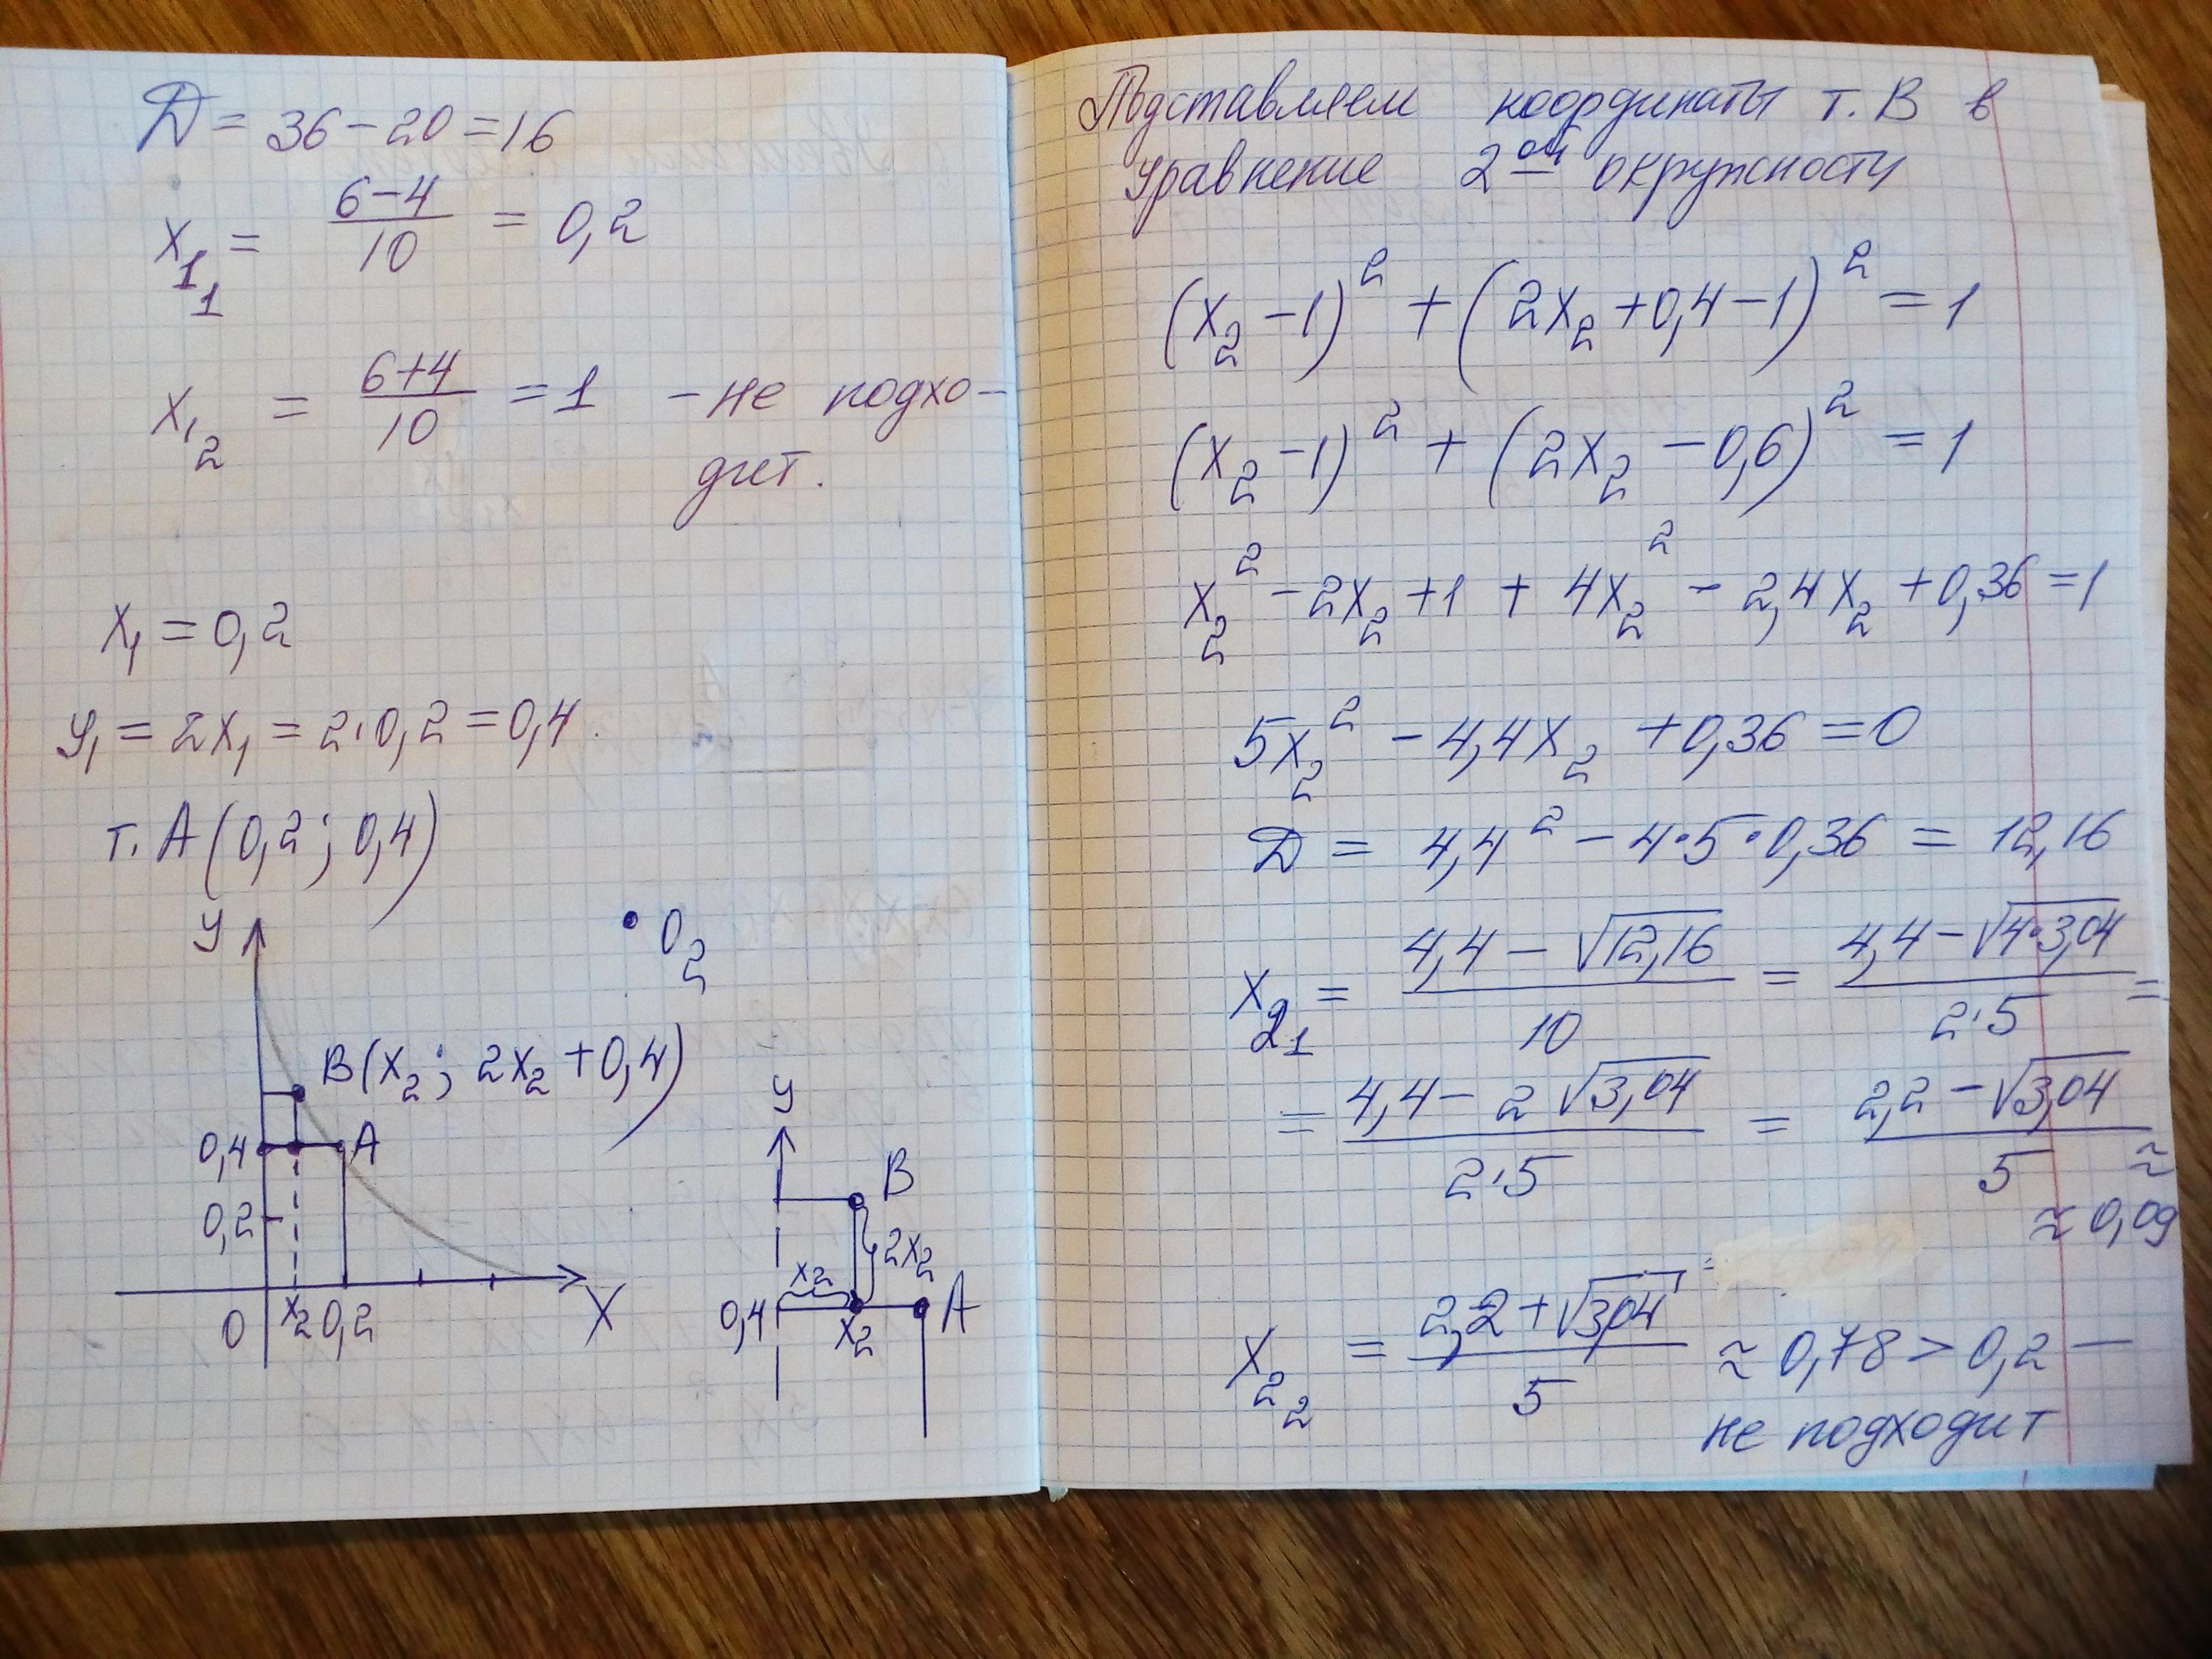 Д = 36 − 20 = 16
x₁₁ = (6 − 4)/10 = 0,2
x₁₂ = (6 + 4)/10 = 1 − не подхо-
дит.
x₁ = 0,2
y₁ = 2x₁ = 2·0,2 = 0,4
т. A (0,2 ; 0,4)
y
O₂
B(x₂ ; 2x₂ + 0,4)
0,4 A
0,2
0 x₂ 0,2 X
y
B
x₂ 2x₂
0,4 x₂ A
Подставляем координаты т. B в
уравнение 2ой окружности
(x₂ − 1)² + (2x₂ + 0,4 − 1)² = 1
(x₂ − 1)² + (2x₂ − 0,6)² = 1
x₂² − 2x₂ + 1 + 4x₂² − 2,4x₂ + 0,36 = 1
5x₂² − 4,4x₂ + 0,36 = 0
Д = 4,4² − 4·5·0,36 = 12,16
x₂₁ = (4,4 − √12,16)/10 = (4,4 − √4·3,04)/2·5 =
= (4,4 − 2√3,04)/2·5 = (2,2 − √3,04)/5 ≈
≈ 0,09
x₂₂ = (2,2 + √3,04)/5 ≈ 0,78 > 0,2 −
не подходит